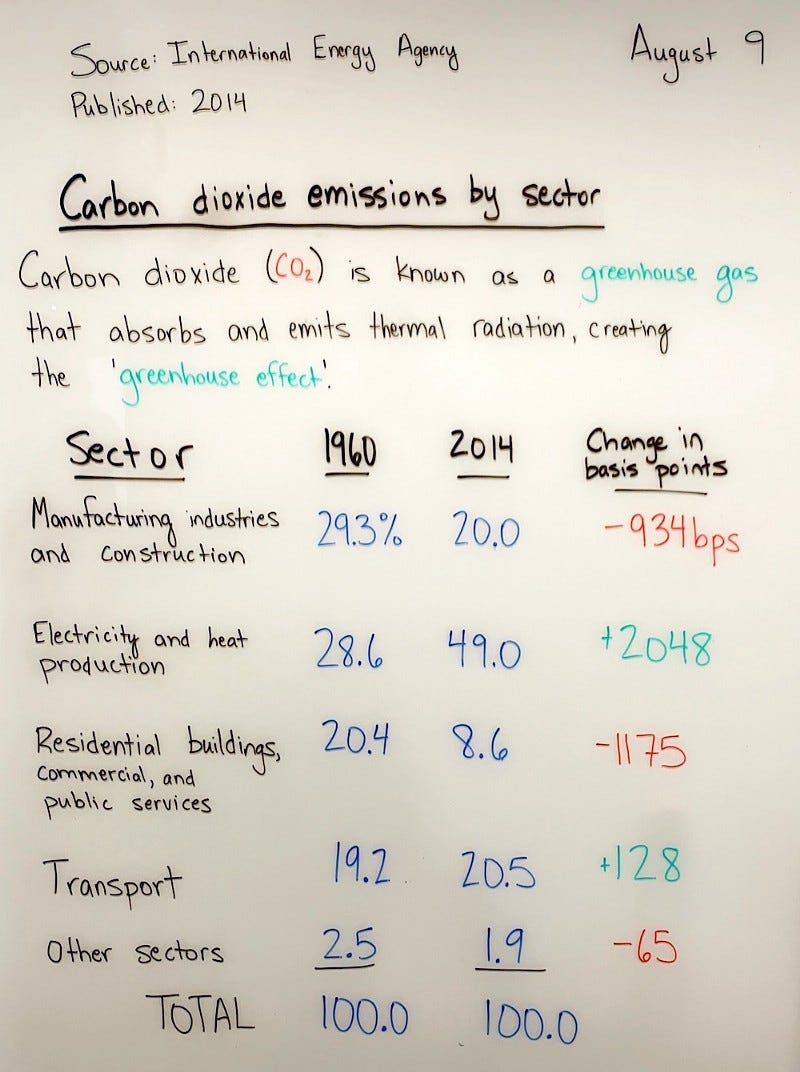 Source: International Energy Agency
August 9
Published: 2014
Carbon dioxide emissions by sector
Carbon dioxide (CO₂) is known as a greenhouse gas
that absorbs and emits thermal radiation, creating
the 'greenhouse effect'.
Sector 1960 2014 Change in
basis points
Manufacturing industries
and construction 29.3% 20.0 -934bps
Electricity and heat
production 28.6 49.0 +2048
Residential buildings, 20.4 8.6 -1175
commercial, and
public services
Transport 19.2 20.5 +128
Other sectors 2.5 1.9 -65
TOTAL 100.0 100.0